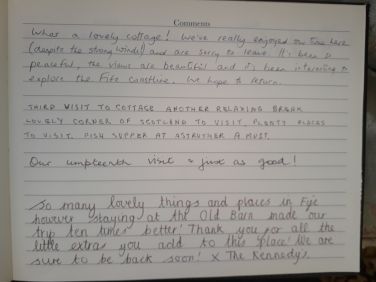 Comments
What a lovely cottage! We've really enjoyed our time here
(despite the strong winds!) and are sorry to leave. It's been so
peaceful, the views are beautiful and it's been interesting to
explore the Fife coastline. We hope to return.
THIRD VISIT TO COTTAGE ANOTHER RELAXING BREAK
LOVELY CORNER OF SCOTLAND TO VISIT, PLENTY PLACES
TO VISIT. FISH SUPPER AT ASTRUTHER A MUST.
Our umpteenth visit & just as good!
So many lovely things and places in Fife
however staying at the Old Barn made our
trip ten times better! Thank you for all the
little extras you add to this place! We are
sure to be back soon! x The Kennedy's.